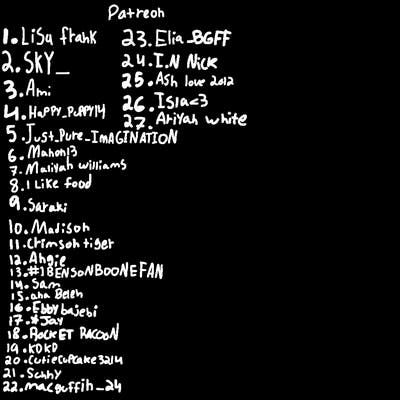 Patreon
1. Lisa frank
2. SKY_
3. Ami
4. HaPPY_PuPPY14
5. Just_Pure_ImAGINATION
6. Mahon13
7. Maliyah williams
8. I Like food
9. Saraki
10. Madison
11. Crimson tiger
12. Angie
13. #1BENSONBOONEFAN
14. Sam
15. ana Belen
16. Ebby bajebi
17. *Jay
18. ROCKET RACOON
19. KOKO
20. CutieCupCake3214
21. Sunny
22. macguffin_24
23. Elia_BGFF
24. I.N NicK
25. Ash love 2012
26. Isla<3
27. Ariyah white